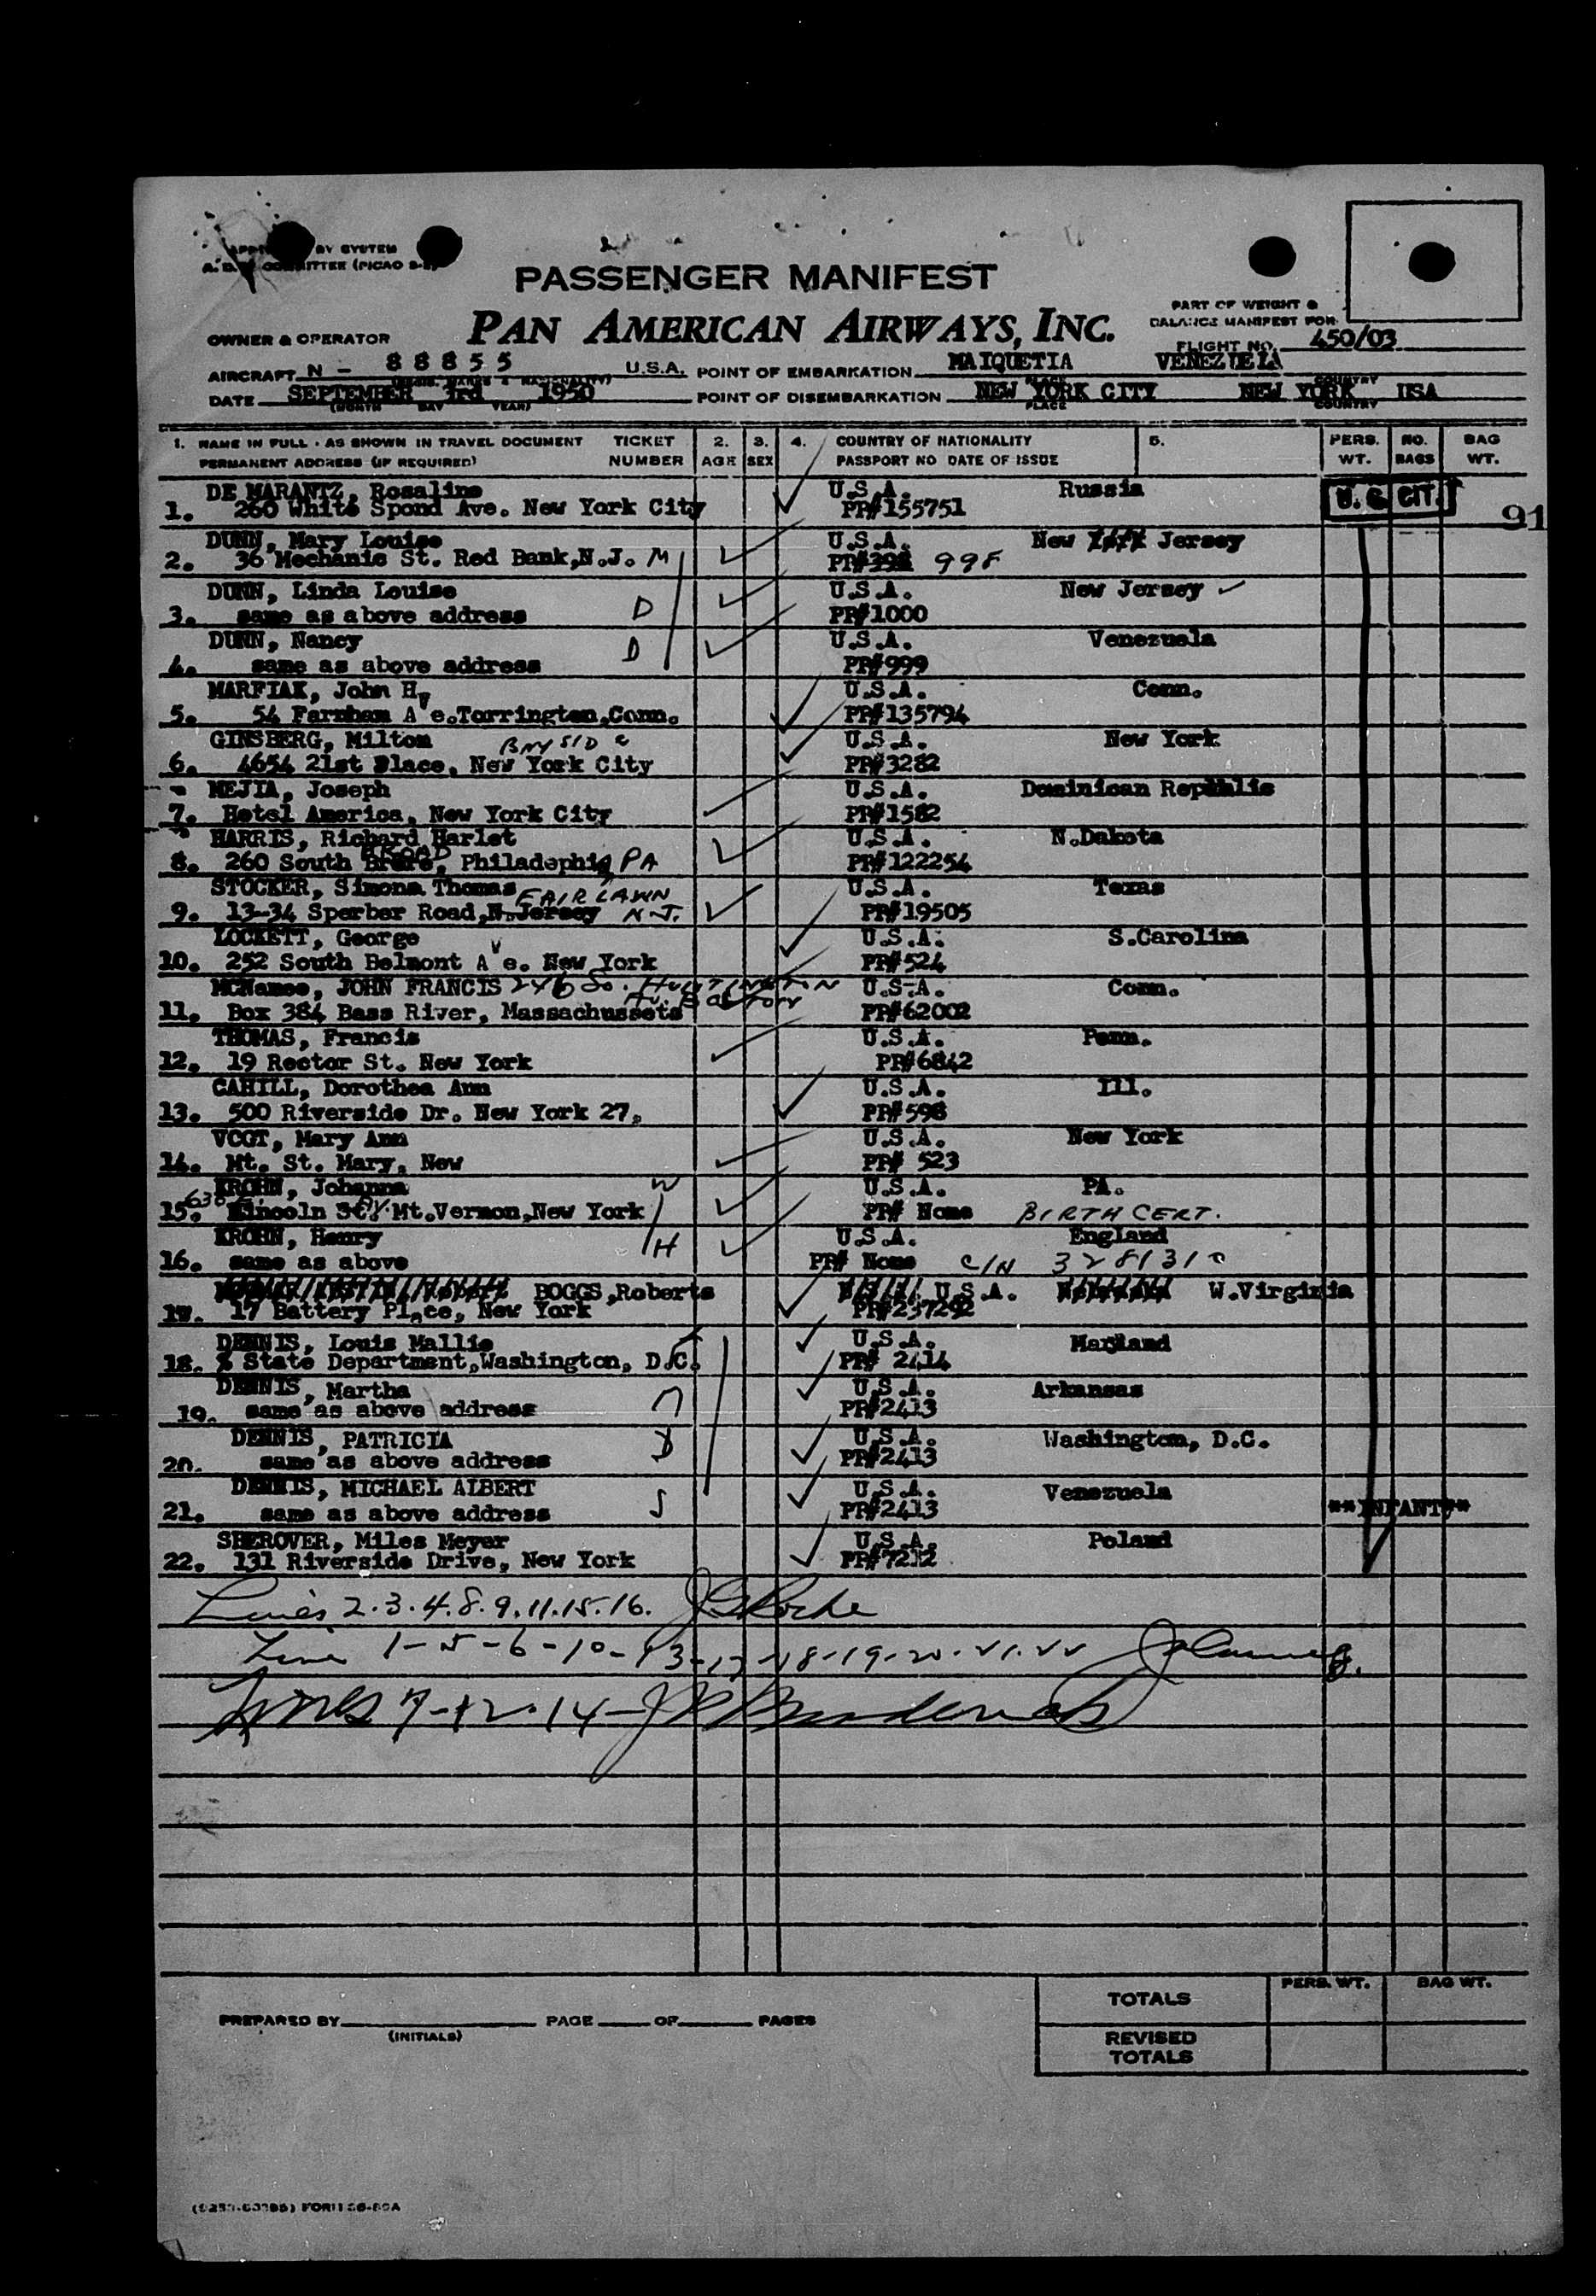 BY SYSTEM
COMMITTEE (PICAO
PASSENGER MANIFEST
PAN AMERICAN AIRWAYS, INC.
PART OF WEIGHT &
BALANCE MANIFEST FOR
OWNER & OPERATOR
FLIGHT NO. 450/03
AIRCRAFT N - 88855 U.S.A. POINT OF EMBARKATION MAIQUETIA VENEZUELA
DATE SEPTEMBER 3rd 1950 POINT OF DISEMBARKATION NEW YORK CITY NEW YORK USA
(MONTH DAY YEAR) PLACE COUNTRY
1. NAME IN FULL - AS SHOWN IN TRAVEL DOCUMENT TICKET 2. 3. 4. COUNTRY OF NATIONALITY 5. PERS. NO. BAG
PERMANENT ADDRESS (IF REQUIRED) NUMBER AGE SEX PASSPORT NO DATE OF ISSUE WT. BAGS WT.
DE MARANTZ, Rosaline U.S.A. Russia U.S. CIT.
1. 260 White Spond Ave. New York City PP#155751 91
DUNN, Mary Louise U.S.A. New Jersey
2. 36 Mechanic St. Red Bank,N.J. M PP#398 998
DUNN, Linda Louise U.S.A. New Jersey
3. same as above address D PP#1000
DUNN, Nancy U.S.A. Venezuela
4. same as above address D PP#999
MARFIAK, John H. U.S.A. Conn.
5. 54 Farnham Ave.Torrington,Conn. PP#135794
GINSBERG, Milton BAYSIDE U.S.A. New York
6. 4654 21st Place, New York City PP#3282
MEJIA, Joseph U.S.A. Dominican Republic
7. Hotel America, New York City PP#1582
HARRIS, Richard Harlet U.S.A. N.Dakota
BROAD
8. 260 South Philadephia PA PP#122254
STOCKER, Simona Thomas FAIR LAWN U.S.A. Texas
9. 13-34 Sperber Road,N.Jersey N.J. PP#19505
LOCKETT, George U.S.A. S.Carolina
10. 252 South Belmont Ave. New York PP#524
McNamee, JOHN FRANCIS 246 So. HUNTINGTON U.S.A. Conn.
11. Box 384 Bass River, Massachussets PP#62002
THOMAS, Francis U.S.A. Penn.
12. 19 Rector St. New York PP#6842
CAHILL, Dorothea Ann U.S.A. Ill.
13. 500 Riverside Dr. New York 27, PP#598
VOGT, Mary Ann U.S.A. New York
14. Mt. St. Mary, New PP# 523
KROHN, Johanna W U.S.A. PA.
15. 630 Lincoln Mt.Vernon,New York PP# None BIRTH CERT.
KROHN, Henry H U.S.A. England
16. same as above PP# None C/N 3281310
BOGGS,Roberts U.S.A. W.Virginia
17. 17 Battery Place, New York PP#237292
DENNIS, Louis Mallie U.S.A. Maryland
18. % State Department,Washington, D.C. PP# 2414
DENNIS, Martha U.S.A. Arkansas
19. same as above address PP#2413
DENNIS, PATRICIA D U.S.A. Washington, D.C.
20. same as above address PP#2413
DENNIS, MICHAEL ALBERT U.S.A. Venezuela
21. same as above address S PP#2413 **INFANT**
SHEROVER, Miles Meyer U.S.A. Poland
22. 131 Riverside Drive, New York PP#7212
Lines 2.3.4.8.9.11.15.16. Roche
Line 1-5-6-10-13-17-18-19-20-21-22
Lines 7-12-14-
TOTALS PERS. WT. BAG WT.
PREPARED BY PAGE OF PAGES
(INITIALS)
REVISED
TOTALS